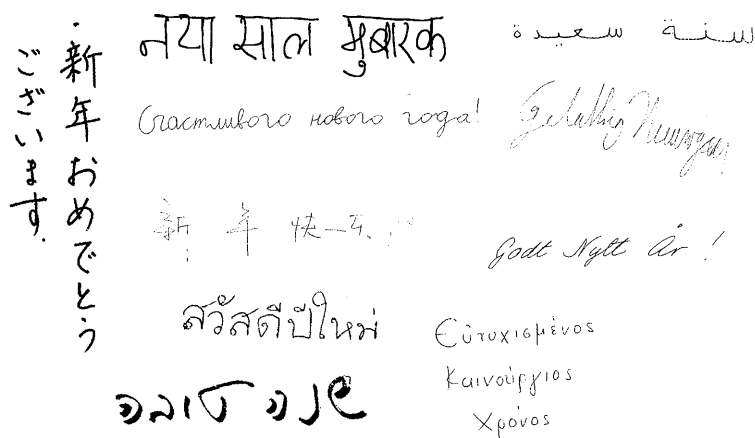 ・新年おめでとう
ございます.
नया साल मुबारक
سنة سعيدة
Счастливого нового года!
Gelukkig Nieuwjaar
新 年 快
Godt Nytt År !
สวัสดีปีใหม่
Εὐτυχισμένος
Καινούργιος
Χρόνος
שנה טובה